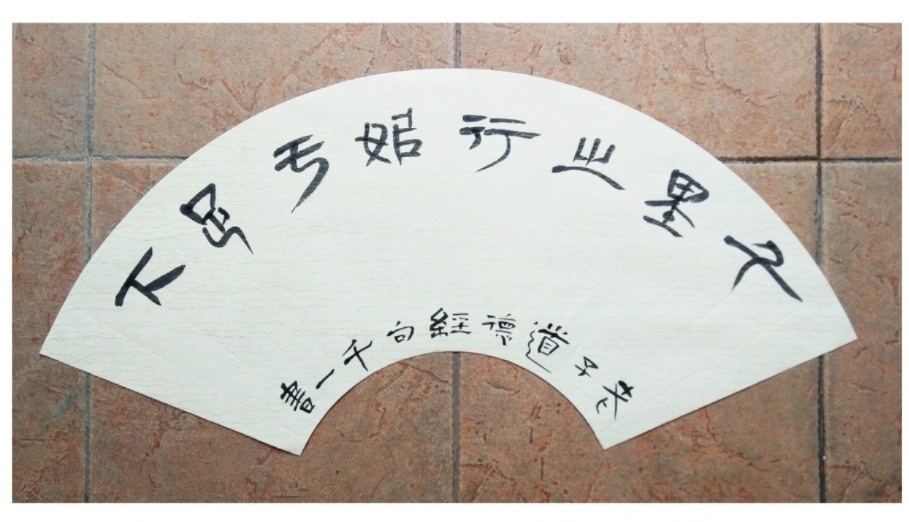 千里之行始于足下
老子道德經句千一書